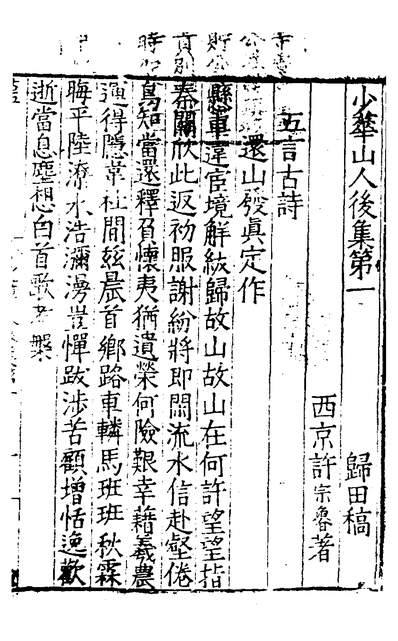 少華山人後集第一
歸田稿
西京許宗魯著
五言古詩
還山發真定作
縣車違宦境解紱歸故山故山在何許望望指
秦關欣此返初服謝紛將即閑流水信赴壑倦
鳥知當還釋負懷夷猶遺榮何險艱幸藉羲農
通得隱京社間兹晨首鄉路車轔馬班班秋霖
晦平陸潦水浩瀰湧豈憚跋涉苦顧增恬逸歡
逝當息塵想白首歌考槃